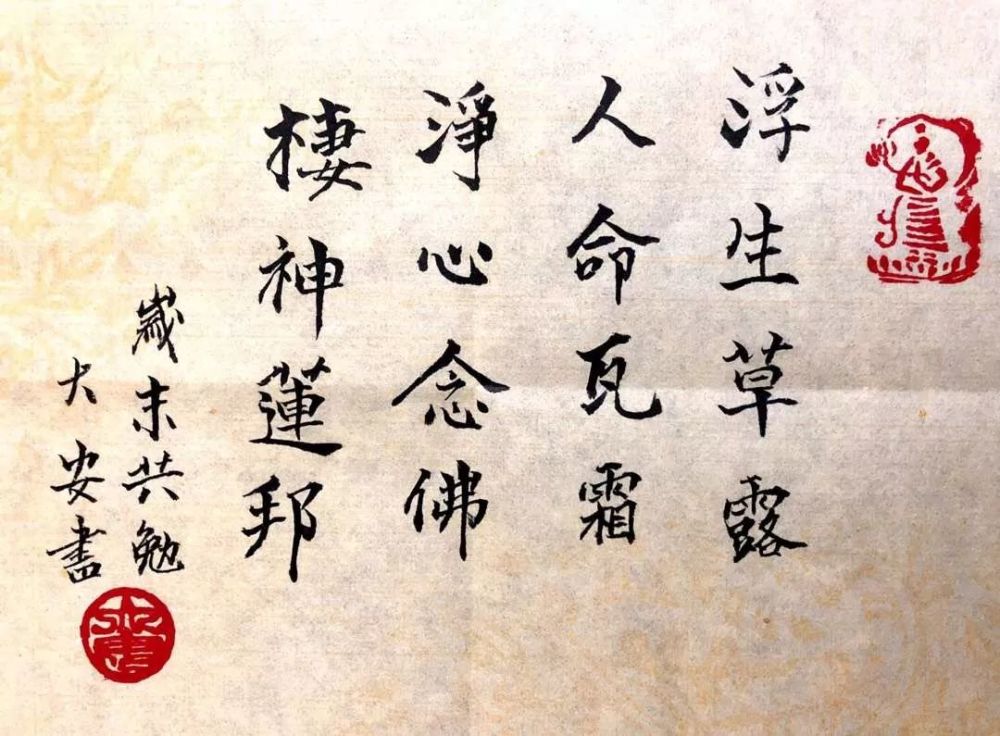 浮生草露
人命瓦霜
淨心念佛
棲神蓮邦
歲末共勉
大安書